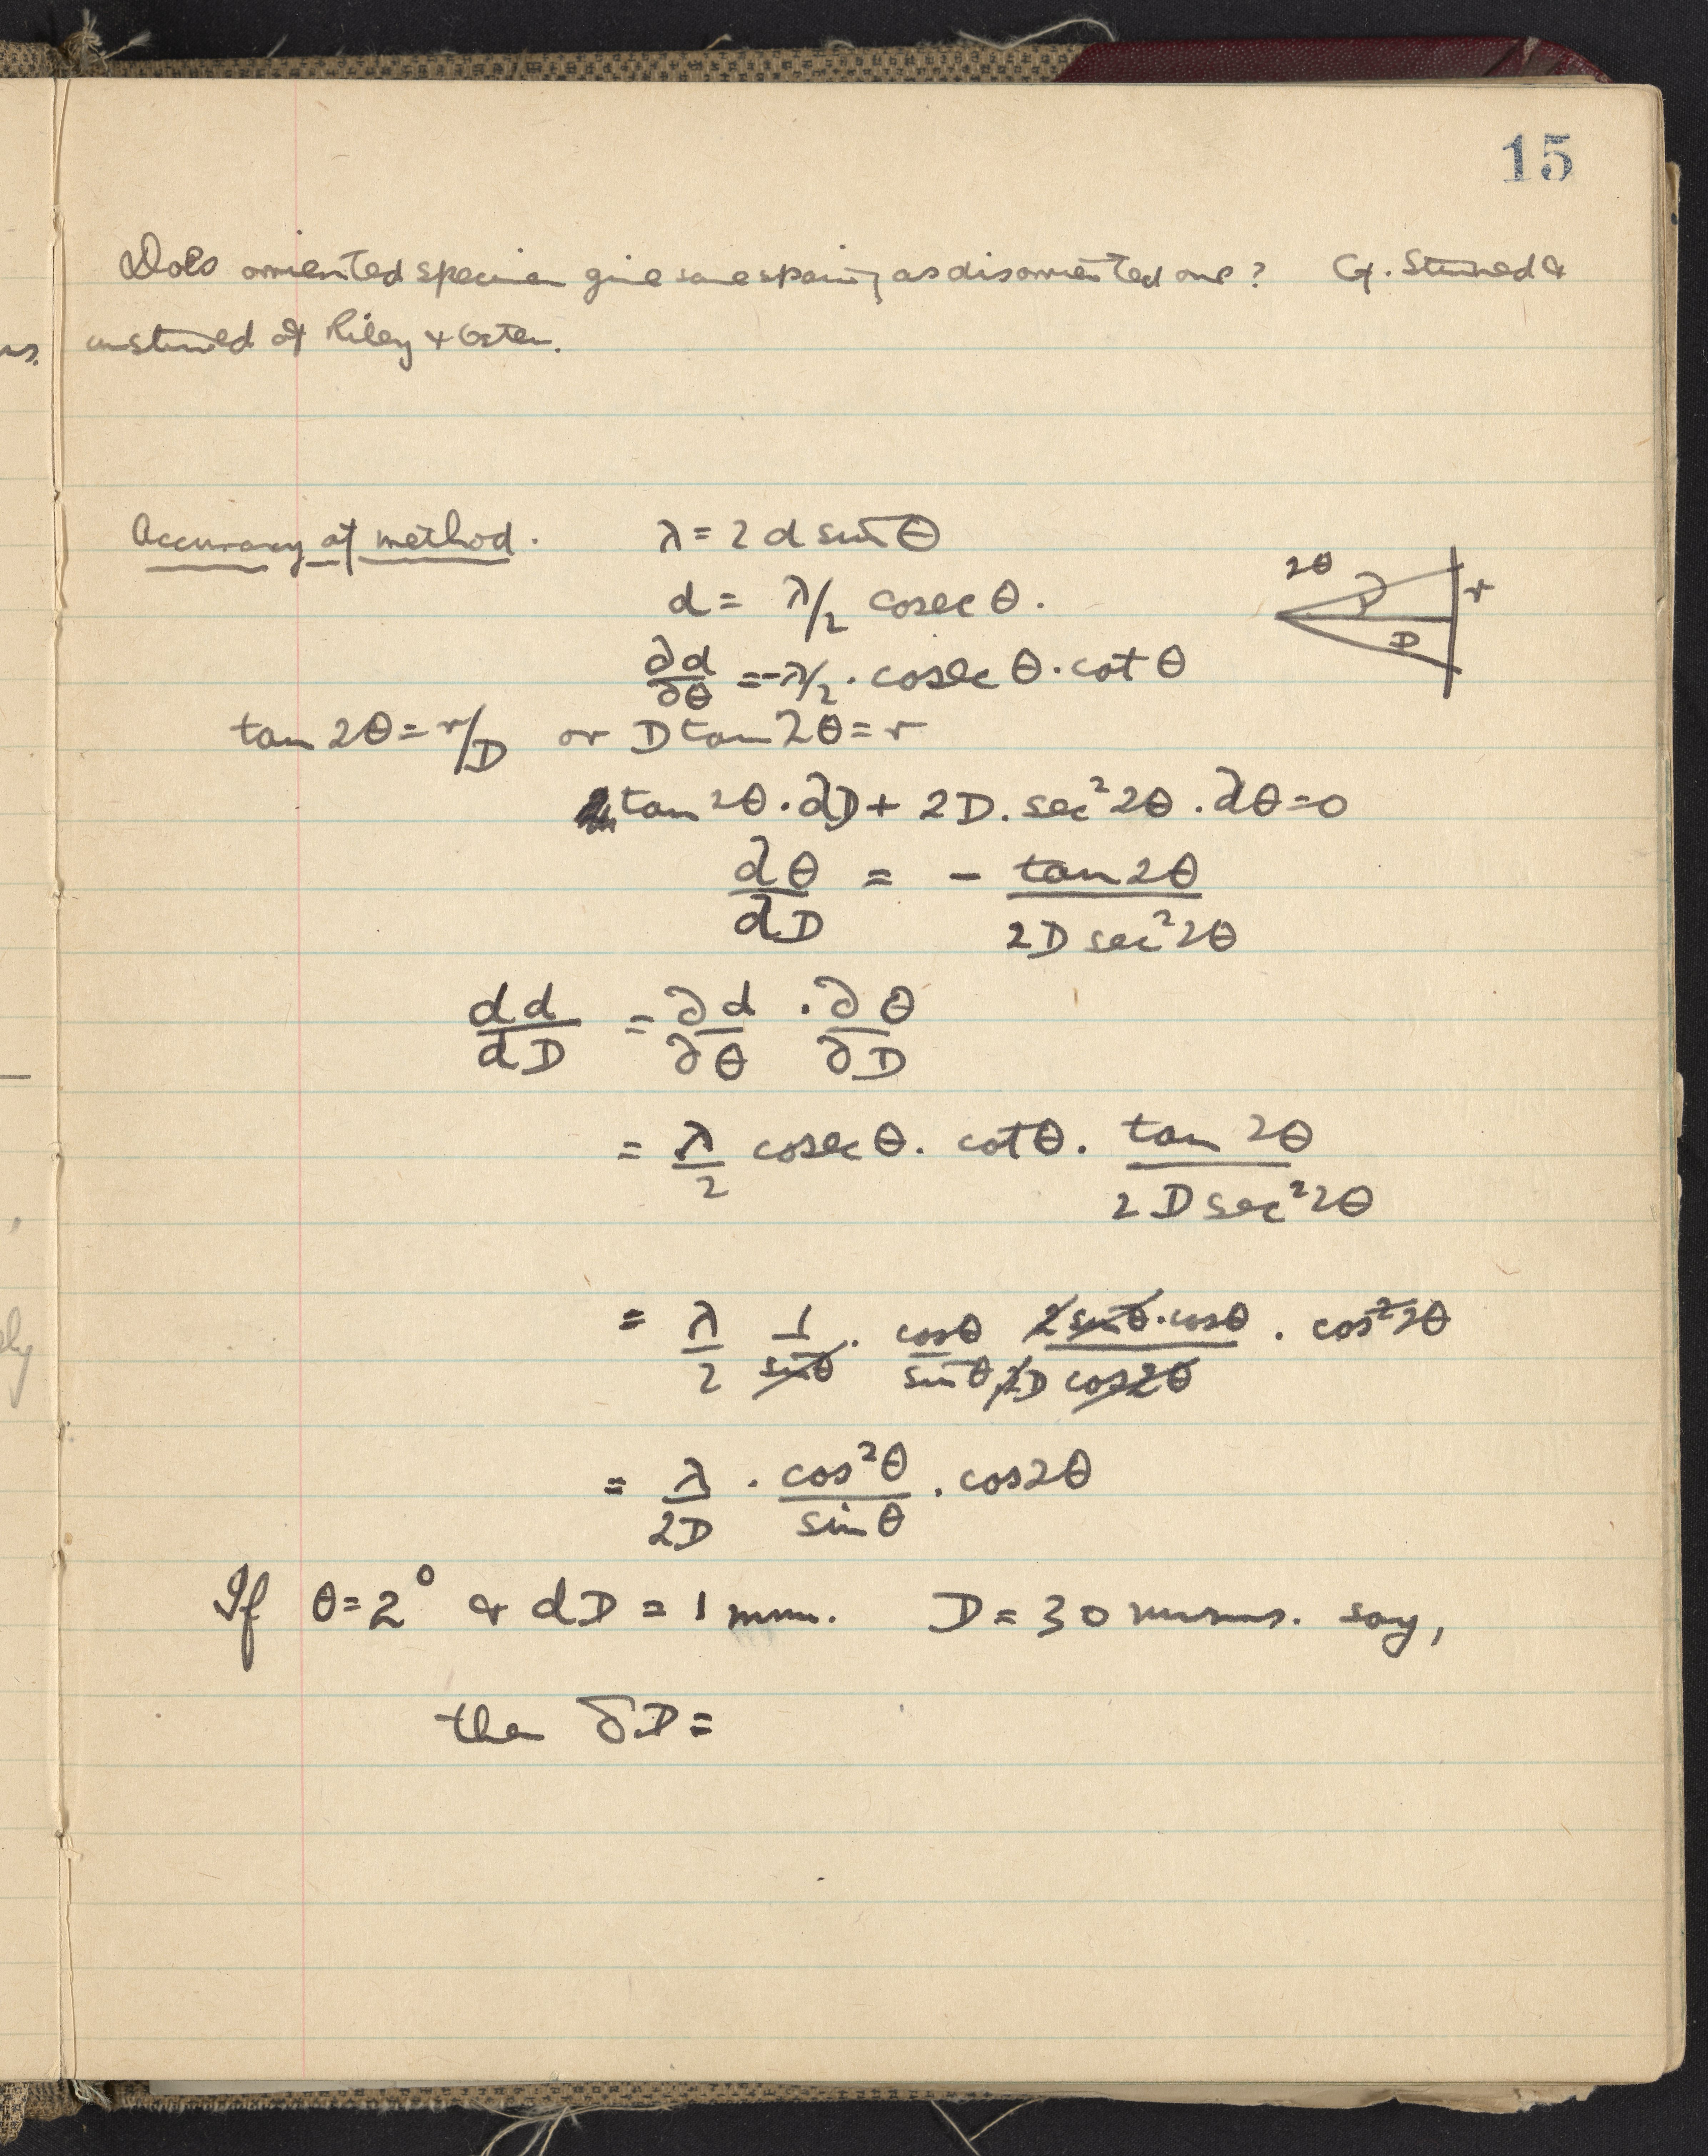 15
Does orriented specimen give same spacing as disorriented one? Cf. Stained &
unstained of Riley & Oster.
Accuracy of method. λ = 2 d sin θ
d = λ/2 cosec θ.
2θ r D
∂d/∂θ = -λ/2 . cosec θ . cot θ
tan 2θ = r/D or D tan 2θ = r
tan 2θ . ∂D + 2D . sec² 2θ . ∂θ = 0
dθ/dD = - tan 2θ / 2D sec² 2θ
dd/dD = ∂d/∂θ . ∂θ/∂D
= λ/2 cosec θ . cot θ . tan 2θ / 2D sec² 2θ
= λ/2 1/sin θ . cos θ/sin θ 2 sin θ . cos θ / 2D cos 2θ . cos² 2θ
= λ/2D . cos² θ / sin θ . cos 2θ
If θ = 2° & dD = 1 mm. D = 30 mms. say,
then δD =